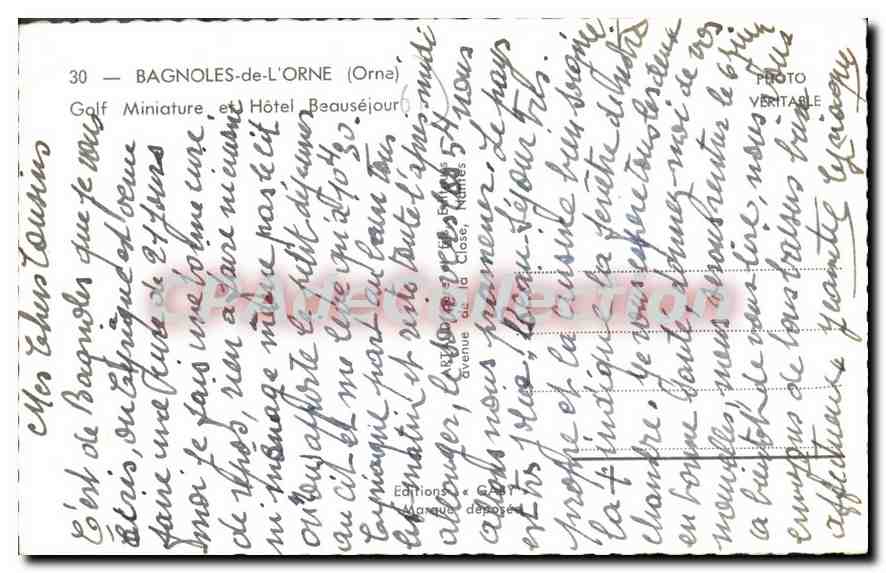 30 — BAGNOLES-de-L'ORNE (Orne)
Golf Miniature et Hôtel Beauséjour
PHOTO
VÉRITABLE
Editions « GABY »
Marque déposée
avenue de la Close, Nantes
CPADeCollection
Mes Chers Cousins
C'est de Bagnoles que je vous
écris, où est venue
faire une cure de 21 jours
moi je fais une bonne cure
de repos, rien à faire ni cuisine
ni ménage même pas le lit
on nous apporte le petit déjeuner
au lit et me lève qu'à 10 h 30.
part au bain tous
les matin et reste toute l'après midi
allonger, le soir vers 5 h nous
allons nous promener. Le pays
est très jolie, Beau-Séjour très
propre et la cuisine bien soignée
la + indique la fenêtre de notre
chambre. Je vous espère tous les deux
en bonne santé, donnez-moi de vos
nouvelles, nous nous rentrer le 6 juin
a bientôt de vous lire, nous vous
envoyons de bons baisers bien
affectueux